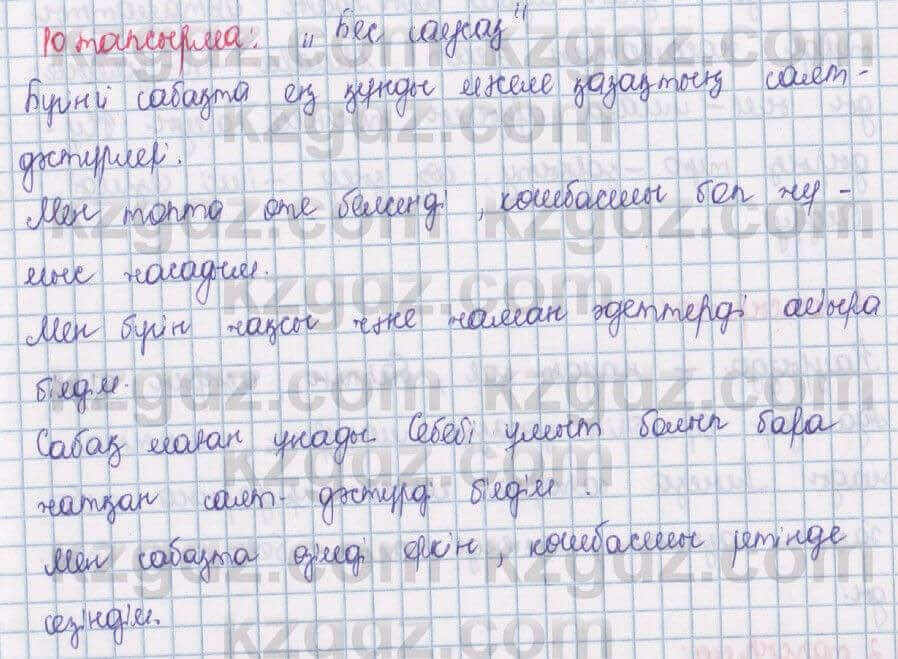 10 тапсырма: „Бес саусақ"
Бүгінгі сабақта ең құнды мәселе қазақтың салт-
дәстүрлері.
Мен топта өте белсенді, көшбасшы боп жұ-
мыс жасадым.
Мен бүгін жақсы және жаман әдеттерді ажырата
білдім.
Сабақ маған ұнады. Себебі ұмыт болып бара
жатқан салт-дәстүрді білдім.
Мен сабақта өзімді еркін, көшбасшы ретінде
сезіндім.
kzgdz.com